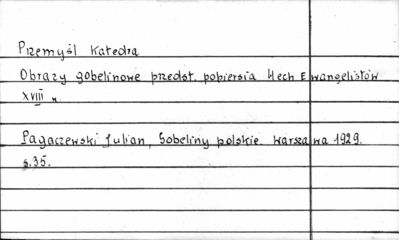 Przemyśl Katedra
Obrazy gobelinowe przedst. popiersia 4ech Ewangelistów
XVIII w.
Pagaczewski Julian, Gobeliny polskie. Warszawa 1929.
s.35.